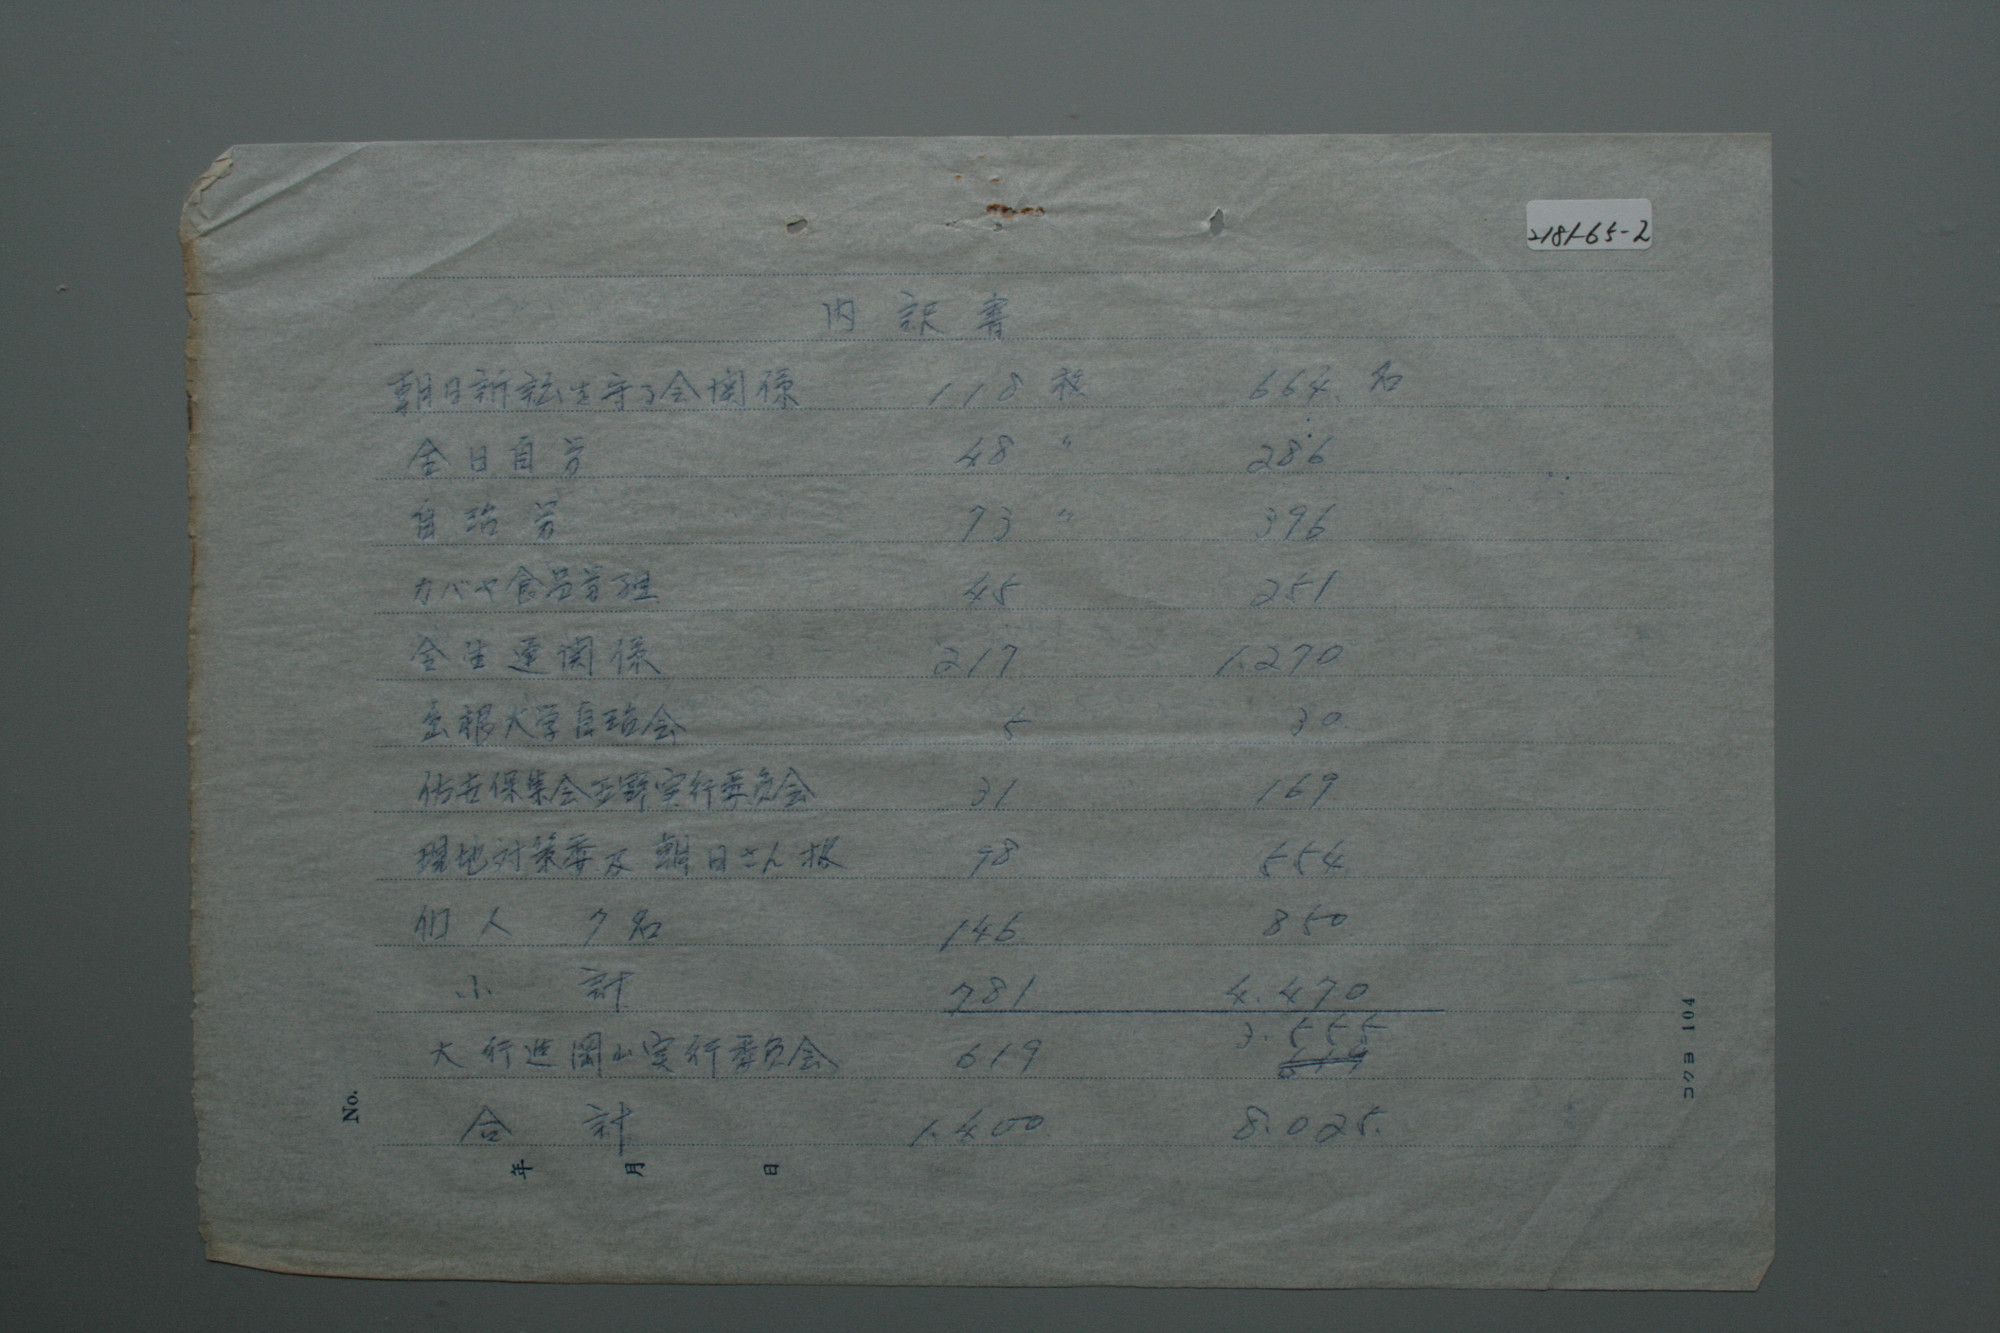 2181-65-2
内訳書
朝日訴訟を守る会関係 118 枚 664 名
全日自労 48 〃 286
自治労 73 〃 396
カバヤ食品労組 45 251
全生連関係 217 1.270
島根大学自治会 5 30
佐古保集会玉野実行委員会 31 169
現地対策委及 朝日さん 様 98 554
個人 7名 146 850
小計 781 4.470
大行進岡山実行委員会 619 3.555
合計 1.400 8.025.
No. 年 月 日
コクヨ 104